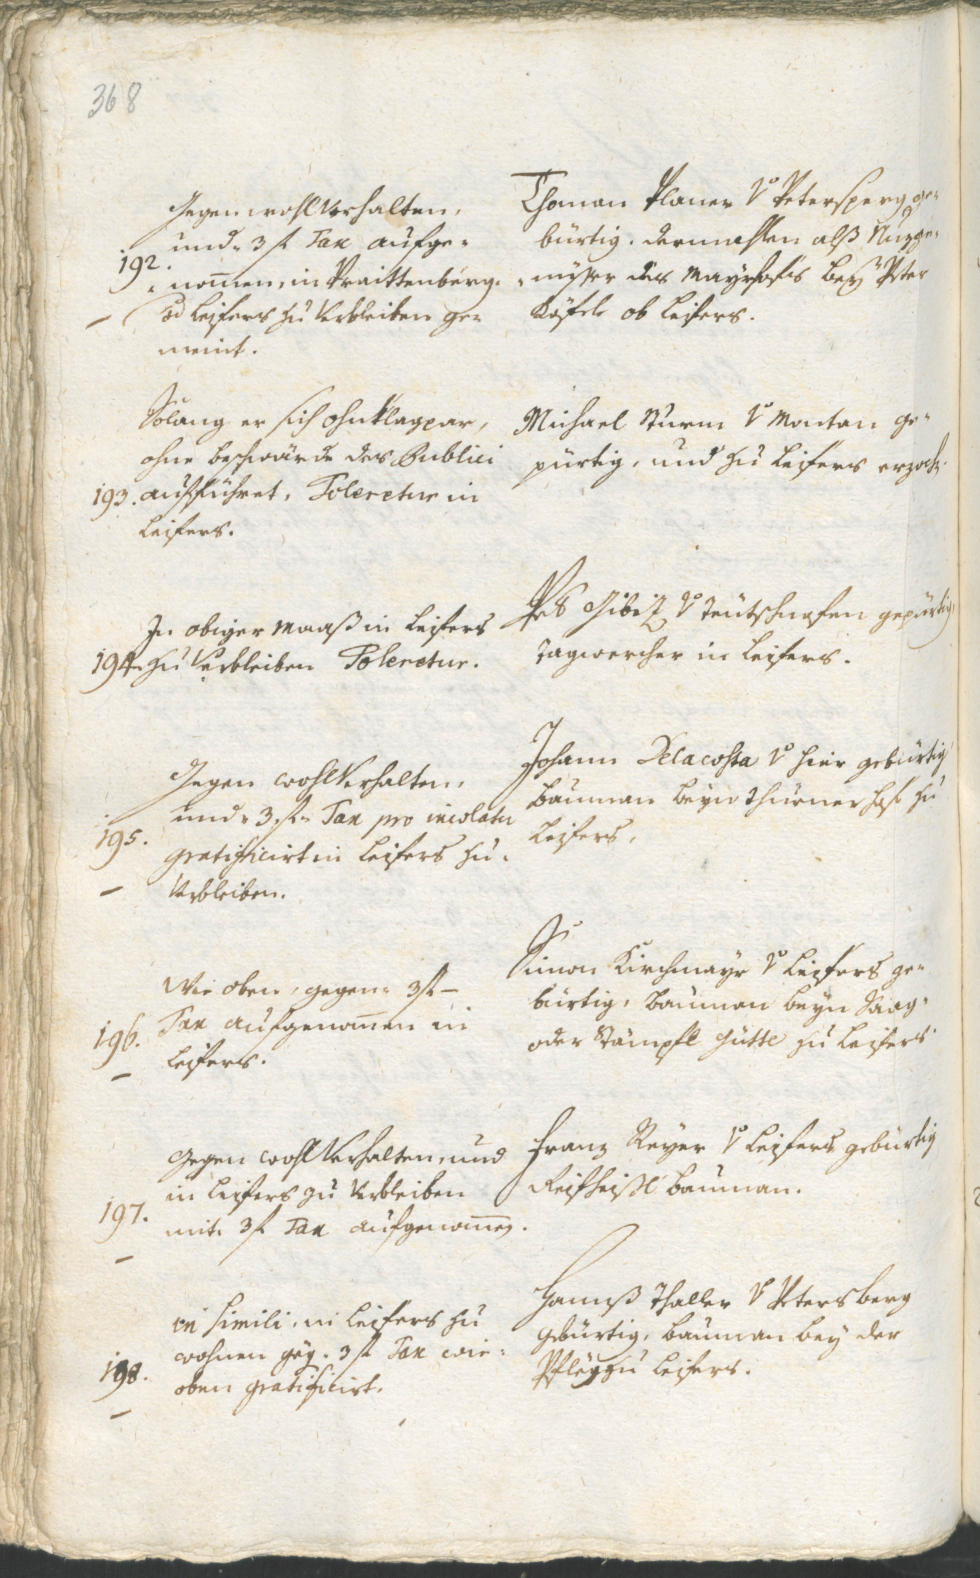 368
Gegen wohl Verhalten,
und 3 f Tax aufge-
192.
nom̅en, in Praittenberg
ob Leifers zu Verbleiben ge-
meint.
Thoman Planer v Petersperg ge-
bürtig, dermahlen alß Nuzge-
nüsser des Mayrhofs bey Peter
Köfele ob Leifers.
Solang er sich ohnklagpar,
ohne beschwärde des Publici
193. aufführet, Toleretur in
Leifers.
Michael Sturm v Montan ge-
pürtig, und zu Leifers erzoch.
In obiger maaß in Leifers
194. zu Verbleiben Toleretur.
Gibiz v Teütschnofen gepürtig,
tagwercher in Leifers.
Gegen wohl Verhalten,
und 3 f Tax pro incolatu
195.
gratificirt in Leifers zu
Verbleiben.
Johann Delacosta v hier gebürtig
Bauman beyn Thurnerhof zu
Leifers.
Wie oben, gegen 3 f
196. Tax aufgenom̅en in
Leifers.
Simon Kirchmayr v Leifers ge-
bürtig, Bauman beyn Saag-
oder Stämpfl hütte zu Leifers
Gegen wohl Verhalten, und
in Leifers zu Verbleiben
197.
mit 3 f Tax aufgenom̅en.
Franz Reyer v Leifers gebürtig
Reifheißl Bauman.
in simili, in Leifers zu
wohnen geg. 3 f Tax wie
198.
oben gratificirt.
Hannß Thaller v Petersberg
gebürtig, Bauman bey der
Pfleg zu Leifers.